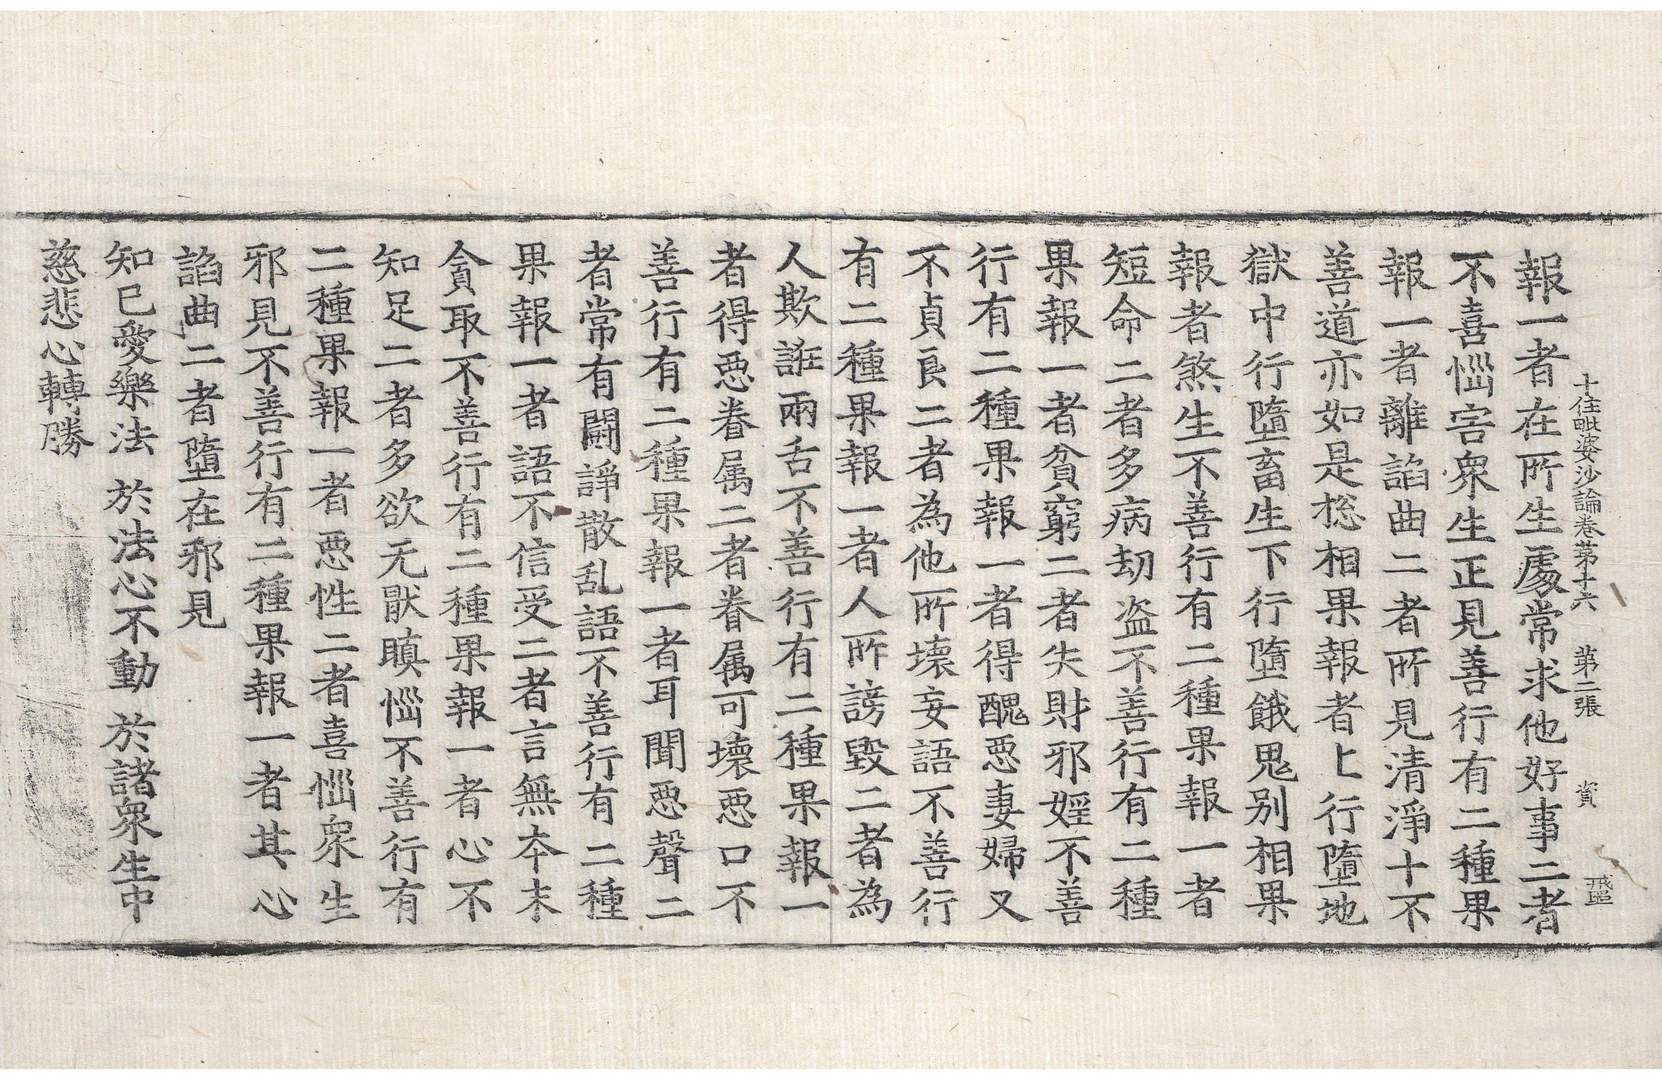 十住毗婆沙論卷第十六 第二張 資
報一者在所生處常求他好事二者
不喜惱害衆生正見善行有二種果
報一者離諂曲二者所見清淨十不
善道亦如是揔相果報者上行墮地
獄中行墮畜生下行墮餓鬼別相果
報者煞生不善行有二種果報一者
短命二者多病劫盗不善行有二種
果報一者貧窮二者失財邪婬不善
行有二種果報一者得醜惡妻婦又
不貞良二者為他所壞妄語不善行
有二種果報一者人所謗毀二者為
人欺誑兩舌不善行有二種果報一
者得惡眷属二者眷属可壞惡口不
善行有二種果報一者耳聞惡聲二
者常有鬪諍散乱語不善行有二種
果報一者語不信受二者言無本末
貪取不善行有二種果報一者心不
知足二者多欲无猒瞋惱不善行有
二種果報一者惡性二者喜惱衆生
邪見不善行有二種果報一者其心
諂曲二者墮在邪見
知已愛樂法 於法心不動 於諸衆生中
慈悲心轉勝